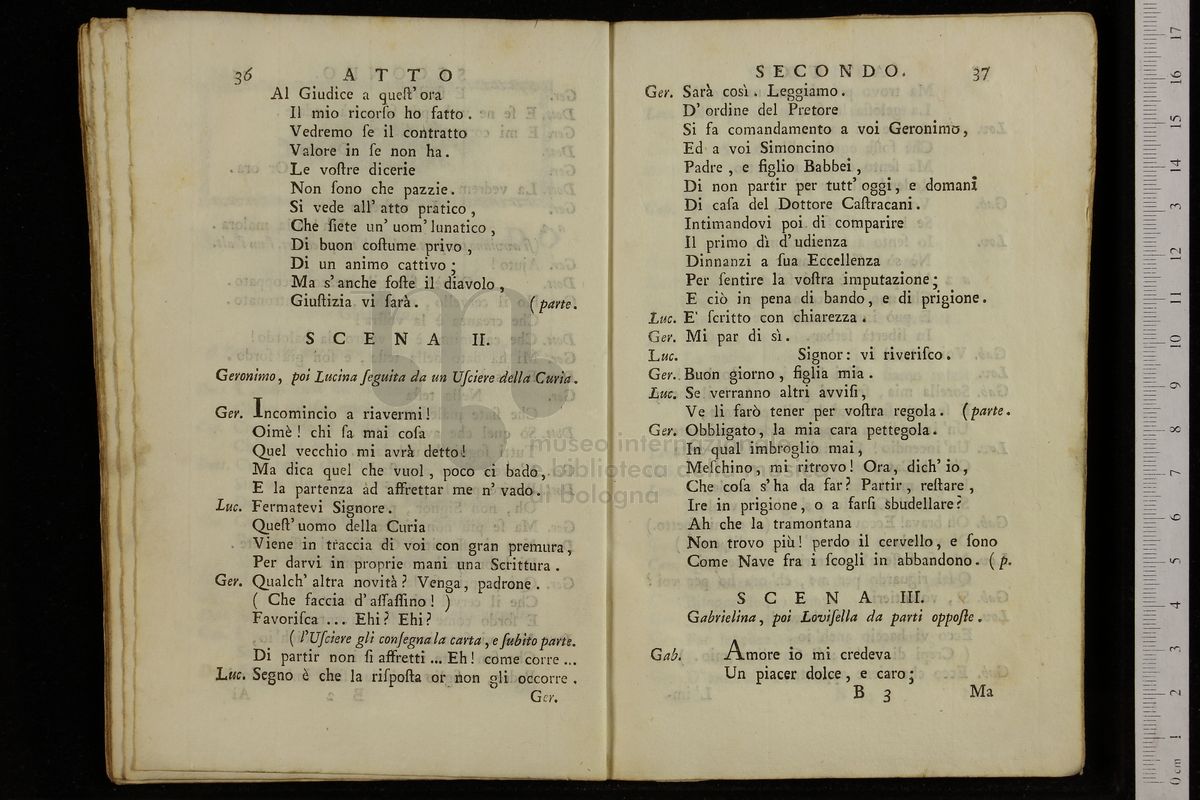 36 ATTO
Al Giudice a queſt' ora
Il mio ricorſo ho fatto.
Vedremo ſe il contratto
Valore in ſe non ha.
Le voſtre dicerie
Non ſono che pazzie.
Si vede all' atto pratico,
Che ſiete un' uom' lunatico,
Di buon coſtume privo,
Di un animo cattivo;
Ma s'anche foſte il diavolo,
Giuſtizia vi farà. (parte.
SCENA II.
Geronimo, poi Lucina ſeguita da un Uſciere della Curia.
Ger. Incomincio a riavermi!
Oimè! chi ſa mai coſa
Quel vecchio mi avrà detto!
Ma dica quel che vuol, poco ci bado,
E la partenza ad affrettar me n' vado.
Luc. Fermatevi Signore.
Queſt' uomo della Curia
Viene in traccia di voi con gran premura,
Per darvi in proprie mani una Scrittura.
Ger. Qualch' altra novità? Venga, padrone.
( Che faccia d' aſſaſſino! )
Favoriſca ... Ehi? Ehi?
( l'Uſciere gli conſegna la carta, e ſubito parte.
Di partir non ſi affretti ... Eh! come corre ...
Luc. Segno è che la riſpoſta or non gli occorre.
Ger.
SECONDO. 37
Ger. Sarà così. Leggiamo.
D' ordine del Pretore
Si fa comandamento a voi Geronimo,
Ed a voi Simoncino
Padre, e figlio Babbei,
Di non partir per tutt' oggi, e domani
Di caſa del Dottore Caſtracani.
Intimandovi poi di comparire
Il primo dì d' udienza
Dinnanzi a ſua Eccellenza
Per ſentire la voſtra imputazione;
E ciò in pena di bando, e di prigione.
Luc. E' ſcritto con chiarezza.
Ger. Mi par di sì.
Luc. Signor: vi riveriſco.
Ger. Buon giorno, figlia mia.
Luc. Se verranno altri avviſi,
Ve li farò tener per voſtra regola. (parte.
Ger. Obbligato, la mia cara pettegola.
In qual imbroglio mai,
Meſchino, mi ritrovo! Ora, dich' io,
Che coſa s' ha da far? Partir, reſtare,
Ire in prigione, o a farſi sbudellare?
Ah che la tramontana
Non trovo più! perdo il cervello, e ſono
Come Nave fra i ſcogli in abbandono. (p.
SCENA III.
Gabrielina, poi Loviſella da parti oppoſte.
Gab. Amore io mi credeva
Un piacer dolce, e caro;
B 3 Ma
museo internazionale
e biblioteca della musica
di Bologna
0 cm 1 2 3 4 5 6 7 8 9 10 11 12 13 14 15 16 17